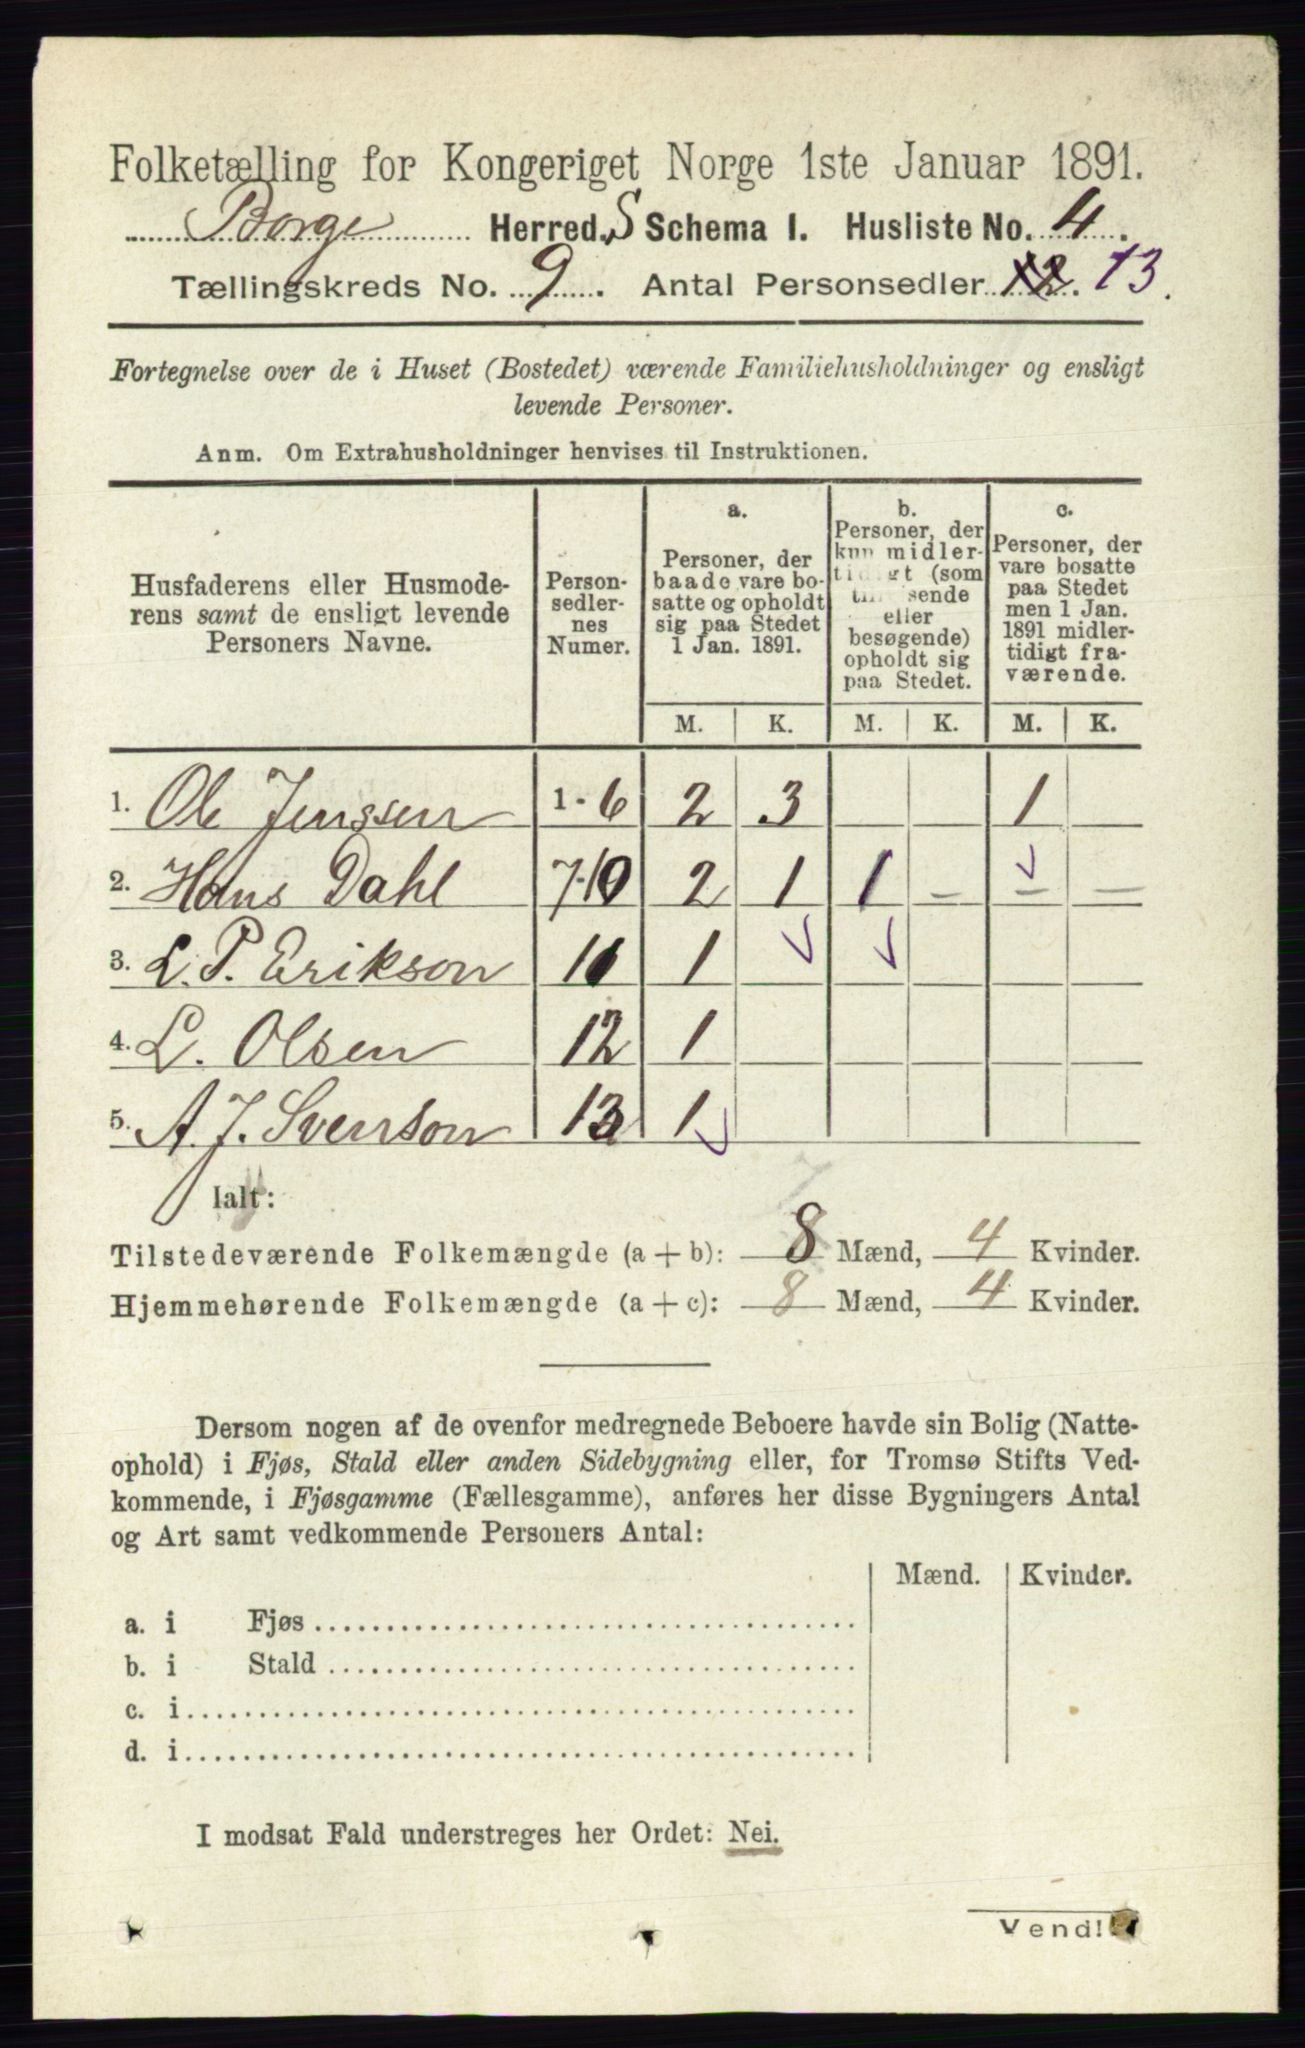 Folketælling for Kongeriget Norge 1ste Januar 1891.
Borge Herred. S Schema I. Husliste No. 4.
Tællingskreds No. 9. Antal Personsedler 12. 13.
Fortegnelse over de i Huset (Bostedet) værende Familiehusholdninger og ensligt
levende Personer.
Anm. Om Extrahusholdninger henvises til Instruktionen.
Husfaderens eller Husmode-
rens samt de ensligt levende
Personers Navne.
Person-
sedler-
nes
Numer.
a.
Personer, der
baade vare bo-
satte og opholdt
sig paa Stedet
1 Jan. 1891.
b.
Personer, der
kun midler-
tidigt (som
sende
eller
besøgende)
opholdt sig
paa Stedet.
c.
Personer, der
vare bosatte
paa Stedet
men 1 Jan.
1891 midler-
tidigt fra-
værende.
M. K. M. K. M. K.
1. Ole Jenssen 1-6 2 3 1
2. Hans Dahl 7-10 2 1 1 – – –
3. L. P. Erikson 11 1
4. L. Olsen 12 1
5. A. J. Svenson 13 1
Ialt:
Tilstedeværende Folkemængde (a + b): 8 Mænd, 4 Kvinder.
Hjemmehørende Folkemængde (a + c): 8 Mænd, 4 Kvinder.
Dersom nogen af de ovenfor medregnede Beboere havde sin Bolig (Natte-
ophold) i Fjøs, Stald eller anden Sidebygning eller, for Tromsø Stifts Ved-
kommende, i Fjøsgamme (Fællesgamme), anføres her disse Bygningers Antal
og Art samt vedkommende Personers Antal:
Mænd. Kvinder.
a. i Fjøs
b. i Stald
c. i
d. i
I modsat Fald understreges her Ordet: Nei.
Vend!